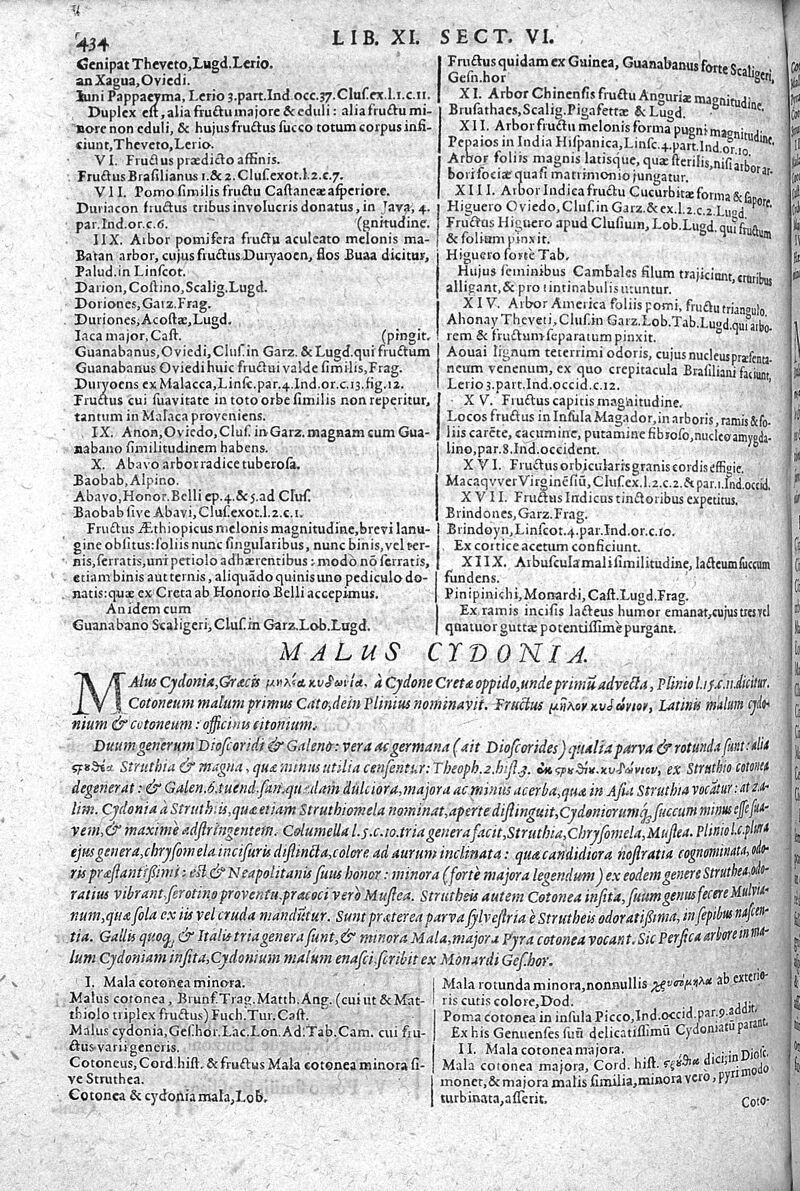 434
LIB. XI. SECT. VI.
Genipat Theveto, Lugd. Lerio.
an Xagua, Oviedi.
Iuni Pappaeyma, Lerio 3. part. Ind. occ. 37. Cluſ. ex. l. 1. c. 11.
Duplex eſt, alia fructu majore & eduli: alia fructu mi-
nore non eduli, & hujus fructus ſucco totum corpus infi-
ciunt, Theveto, Lerio.
VI. Fructus prædicto affinis.
Fructus Braſilianus 1. & 2. Cluſ. exot. l. 2. c. 7.
VII. Pomo ſimilis fructu Caſtaneæ aſperiore.
Duriacon fructus tribus involucris donatus, in Java, 4.
par. Ind. or. c. 6. (gnitudine.
IIX. Arbor pomifera fructu aculeato melonis ma-
Batan arbor, cujus fructus Duryaoen, flos Buaa dicitur,
Palud. in Linſcot.
Darion, Coſtino, Scalig. Lugd.
Doriones, Garz. Frag.
Duriones, Acoſtæ, Lugd.
Iaca major, Caſt. (pingit.
Guanabanus, Oviedi, Cluſ. in Garz. & Lugd. qui fructum
Guanabanus Oviedi huic fructui valde ſimilis, Frag.
Duryoens ex Malacca, Linſc. par. 4. Ind. or. c. 13. fig. 12.
Fructus cui ſuavitate in toto orbe ſimilis non reperitur,
tantum in Malaca proveniens.
IX. Anon, Oviedo, Cluſ. in Garz. magnam cum Gua-
nabano ſimilitudinem habens.
X. Abavo arbor radice tuberoſa.
Baobab, Alpino.
Abavo, Honor. Belli ep. 4. & 5. ad Cluſ.
Baobab ſive Abavi, Cluſ. exot. l. 2. c. 1.
Fructus Æthiopicus melonis magnitudine, brevi lanu-
gine obſitus: foliis nunc ſingularibus, nunc binis, vel ter-
nis, ſerratis, uni petiolo adhærentibus: modo nõ ſerratis,
etiam binis aut ternis, aliquãdo quinis uno pediculo do-
natis: quæ ex Creta ab Honorio Belli accepimus.
An idem cum
Guanabano Scaligeri, Cluſ. in Garz. Lob. Lugd.
Fructus quidam ex Guinea, Guanabanus forte Scaligeri,
Geſn. hor
XI. Arbor Chinenſis fructu Anguriæ magnitudine.
Bruſathaes, Scalig. Pigafettæ & Lugd.
XII. Arbor fructu melonis forma pugni magnitudine.
Pepaios in India Hiſpanica, Linſc. 4. part. Ind. or. 10.
Arbor foliis magnis latiſque, quæ ſterilis, niſi arbor ar-
bori ſociæ quaſi matrimonio jungatur.
XIII. Arbor Indica fructu Cucurbitæ forma & ſapore.
Higuero Oviedo, Cluſ. in Garz. & ex. l. 2. c. 2. Lugd.
Fructus Higuero apud Cluſium, Lob. Lugd. qui fructum
& folium pinxit.
Higuero forte Tab.
Hujus ſeminibus Cambales filum trajiciunt, cruribus
alligant, & pro tintinabulis utuntur.
XIV. Arbor America foliis pomi, fructu triangulo.
Ahonay Theveti, Cluſ. in Garz. Lob. Tab. Lugd. qui arbo-
rem & fructum ſeparatum pinxit.
Aouai lignum teterrimi odoris, cujus nucleus præſenta-
neum venenum, ex quo crepitacula Braſiliani faciunt,
Lerio 3. part. Ind. occid. c. 12.
XV. Fructus capitis magnitudine.
Locos fructus in Inſula Magador, in arboris, ramis & fo-
liis carẽte, cacumine, putamine fibroſo, nucleo amygda-
lino, par. 8. Ind. occident.
XVI. Fructus orbicularis granis cordis effigie.
Macaqvver Virginẽſiũ, Cluſ. ex. l. 2. c. 2. & par. 1. Ind. occid.
XVII. Fructus Indicus tinctoribus expetitus.
Brindones, Garz. Frag.
Brindoyn, Linſcot. 4. par. Ind. or. c. 10.
Ex cortice acetum conficiunt.
XIIX. Arbuſcula mali ſimilitudine, lacteum ſuccum
fundens.
Pinipinichi, Monardi, Caſt. Lugd. Frag.
Ex ramis inciſis lacteus humor emanat, cujus tres vel
quatuor guttæ potentiſſimè purgant.
MALUS CYDONIA.
MAlus Cydonia, Græcis μηλέα κυδωνία, à Cydone Cretæ oppido, unde primũ advecta, Plinio l. 15. c. 11. dicitur.
Cotoneum malum primus Cato, dein Plinius nominavit. Fructus μῆλον κυδώνιον, Latinis malum cydo-
nium & cotoneum: officinis citonium.
Duum generum Dioſcoridi & Galeno: vera ac germana (ait Dioſcorides) qualia parva & rotunda ſunt: alia
ϛρουθία Struthia & magna, quæ minus utilia cenſentur: Theoph. 2. hiſt. 3. ἐκ ϛρουθίου κυδώνιον, ex Struthio cotonea
degenerat: & Galen. 6. tuend. ſan. quædam dulciora, majora ac minus acerba, quæ in Aſia Struthia vocãtur: at 2. a-
lim. Cydonia à Struthiis, quæ etiam Struthiomela nominat, aperte diſtinguit, Cydoniorumq́; ſuccum minus eſſe ſua-
vem, & maximè adſtringentem. Columella l. 5. c. 10. tria genera facit, Struthia, Chryſomela, Muſtea. Plinio l. c. plura
ejus genera, chryſomela inciſuris diſtincta, colore ad aurum inclinata: quæ candidiora noſtratia cognominata, odo-
ris præſtantiſſimi: eſt & Neapolitanis ſuus honor: minora (fortè majora legendum) ex eodem genere Struthea. odo-
ratius vibrant, ſerotino proventu, præcoci verò Muſtea. Strutheis autem Cotonea inſita, ſuum genus fecere Mulvia-
num, quæ ſola ex iis vel cruda mandũtur. Sunt præterea parva ſylveſtria è Strutheis odoratiſſima, in ſepibus naſcen-
tia. Gallis quoq́; & Italis tria genera ſunt, & minora Mala, majora Pyra cotonea vocant. Sic Perſica arbore in ma-
lum Cydoniam inſita, Cydonium malum enaſci, ſcribit ex Monardi Geſ. hor.
I. Mala cotonea minora.
Malus cotonea, Brunf. Trag. Matth. Ang. (cui ut & Mat-
thiolo triplex fructus) Fuch. Tur. Caſt.
Malus cydonia, Geſ. hor. Lac. Lon. Ad. Tab. Cam. cui fru-
ctus varii generis.
Cotoneus, Cord. hiſt. & fructus Mala cotonea minora ſi-
ve Struthea.
Cotonea & cydonia mala, Lob.
Mala rotunda minora, nonnullis χρυσόμηλα ab exterio-
ris cutis colore, Dod.
Poma cotonea in inſula Picco, Ind. occid. par. 9. addit.
Ex his Genuenſes ſuũ delicatiſſimũ Cydoniatũ parant.
II. Mala cotonea majora.
Mala cotonea majora, Cord. hiſt. ϛρούθια dici, in Dioſc.
monet, & majora malis ſimilia, minora vero, pyri modo
turbinata, aſſerit.
Coto-